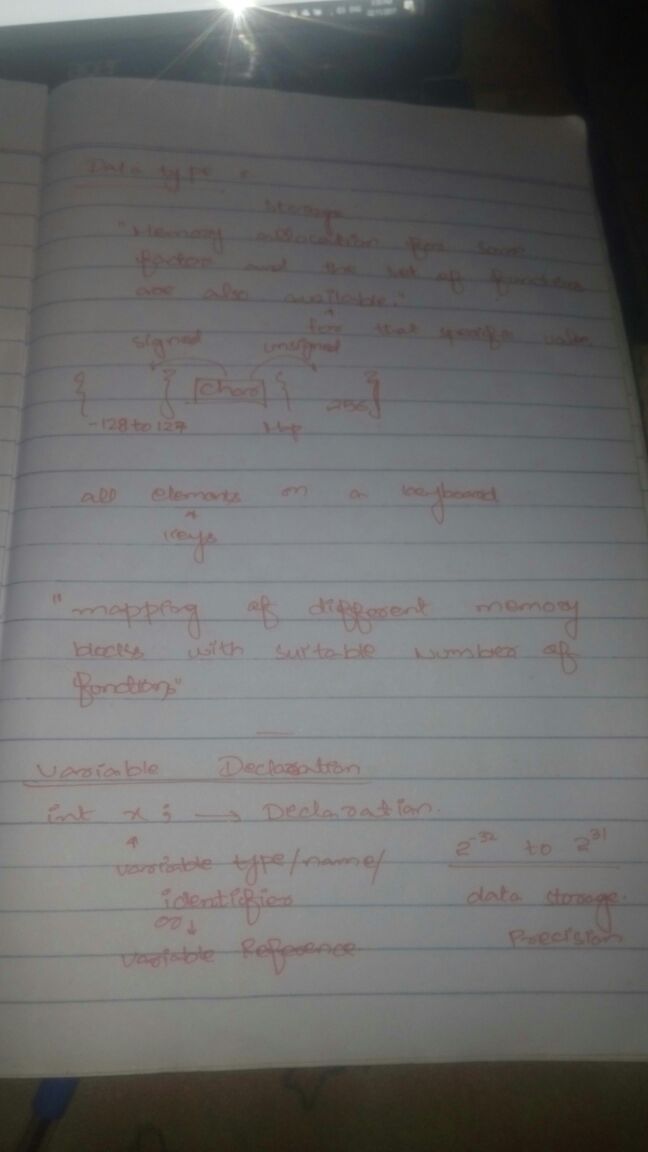 Data type :
storage
"Memory allocation for some
factor and the set of functions
are also available."
for that specific value
signed unsigned
{ } char { 256}
-128 to 127
all elements on a keyboard
keys
"mapping of different memory
blocks with suitable number of
functions"
Variable Declaration
int x ; → Declaration.
variable type/name/ 2^-32 to 2^31
identifier data storage.
or ↓ Precision
variable Reference